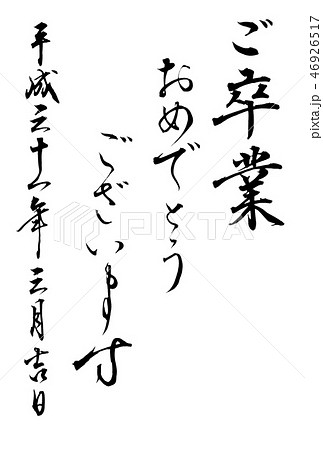 ご卒業
おめでとう
ございます
平成三十一年三月吉日
PIXTA
pixta.jp - 46926517